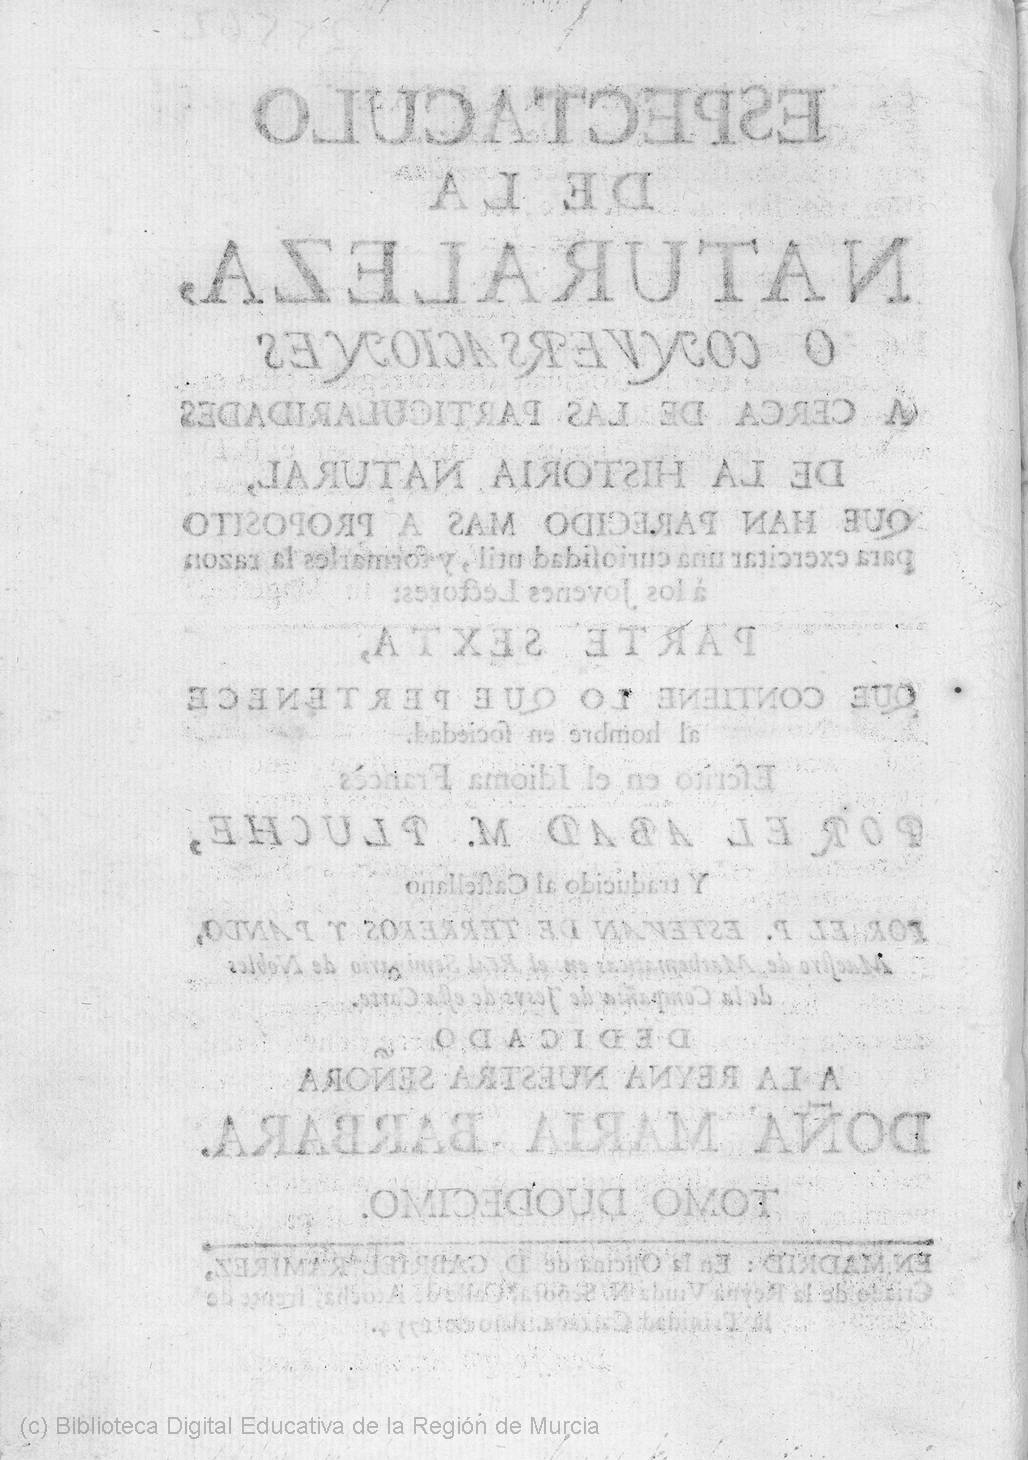 ESPECTACULO
DE LA
NATURALEZA,
O CONVERSACIONES
A CERCA DE LAS PARTICULARIDADES
DE LA HISTORIA NATURAL,
QUE HAN PARECIDO MAS A PROPOSITO
para exercitar una curiosidad util, y formarles la razon
à los Jovenes Lectores:
PARTE SEXTA,
QUE CONTIENE LO QUE PERTENECE
al hombre en sociedad.
Escrito en el Idioma Francés
POR EL ABAD M. PLUCHE,
Y traducido al Castellano
POR EL P. ESTEVAN DE TERREROS Y PANDO,
Maestro de Mathematicas en el Real Seminario de Nobles
de la Compañia de Jesvs de esta Corte.
DEDICADO
A LA REYNA NUESTRA SEÑORA
DOÑA MARIA BARBARA.
TOMO DUODECIMO.
EN MADRID: En la Oficina de D. GABRIEL RAMIREZ,
Criado de la Reyna Viuda N. Señora, Calle de Atocha, frente de
la Trinidad Calzada. Año
(c) Biblioteca Digital Educativa de la Región de Murcia